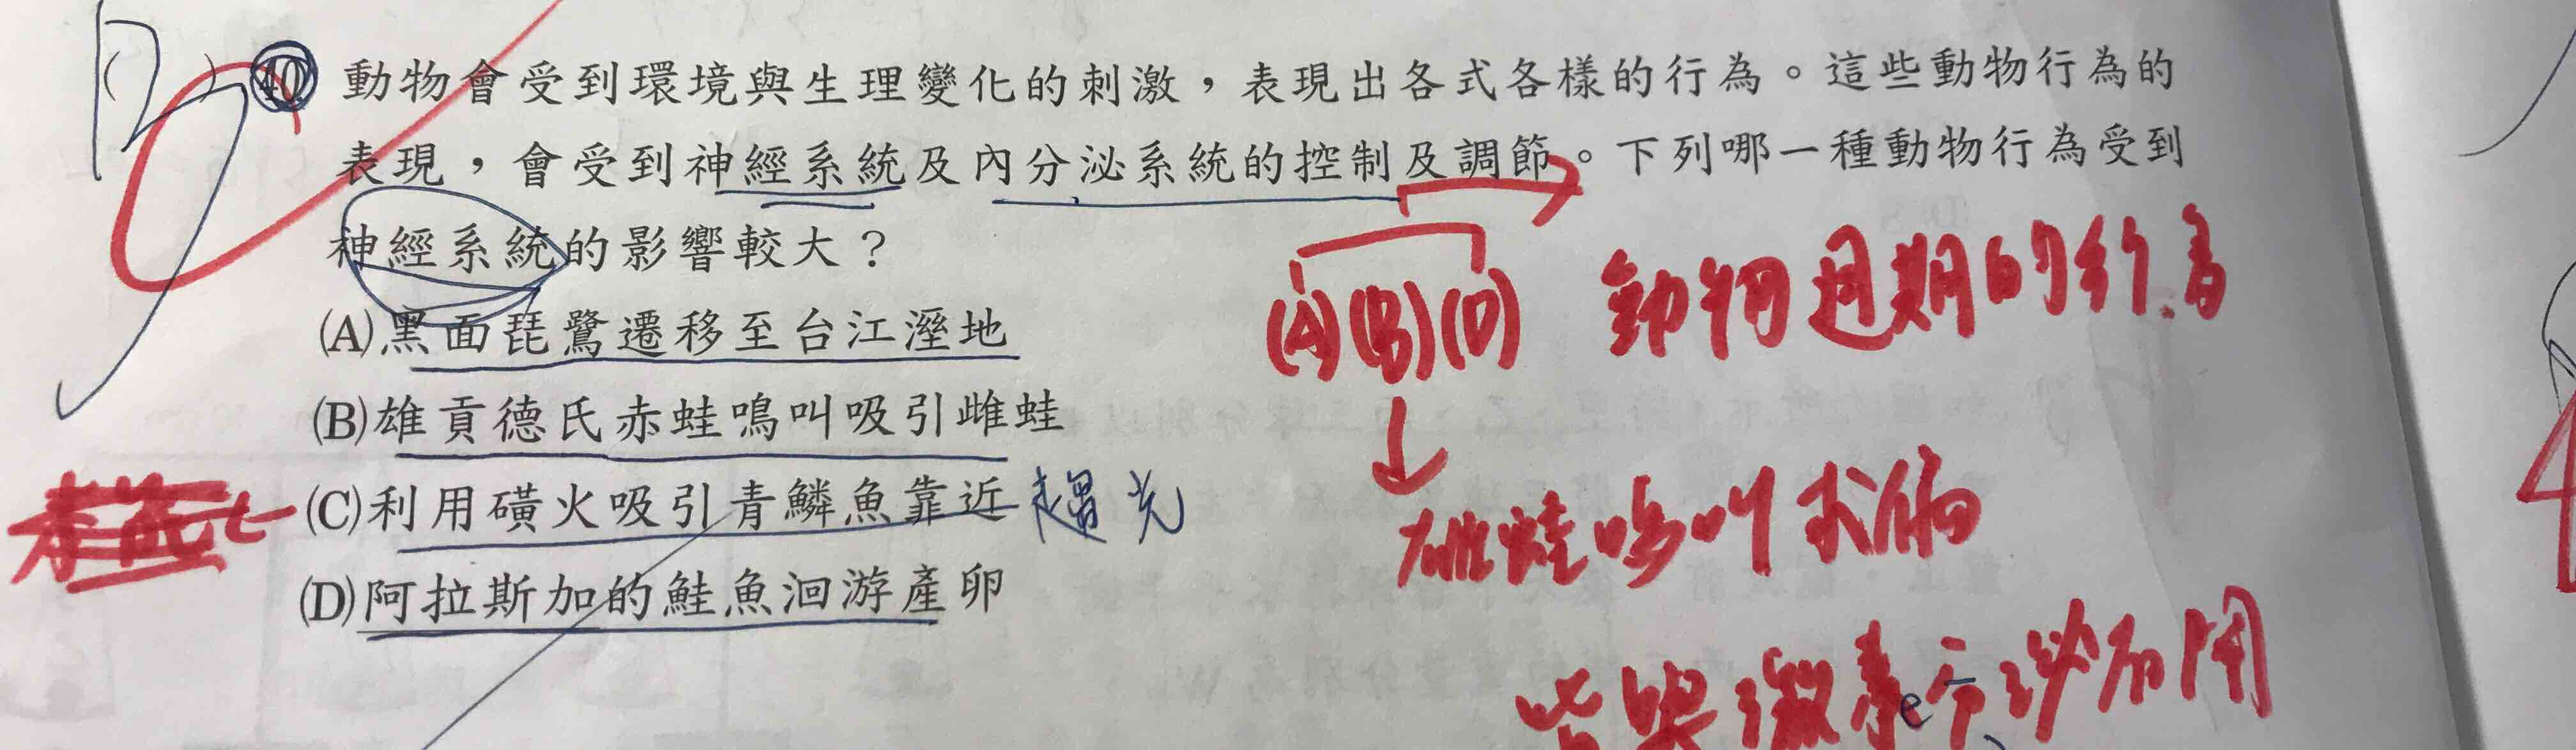 40 動物會受到環境與生理變化的刺激，表現出各式各樣的行為。這些動物行為的
表現，會受到神經系統及內分泌系統的控制及調節。下列哪一種動物行為受到
神經系統的影響較大？
(A)黑面琵鷺遷移至台江溼地
(B)雄貢德氏赤蛙鳴叫吸引雌蛙
(C)利用磺火吸引青鱗魚靠近 趨光
(D)阿拉斯加的鮭魚洄游產卵
(A)(B)(D) 動物週期的行為
雄蛙鳴叫求偶
皆與激素分泌有關